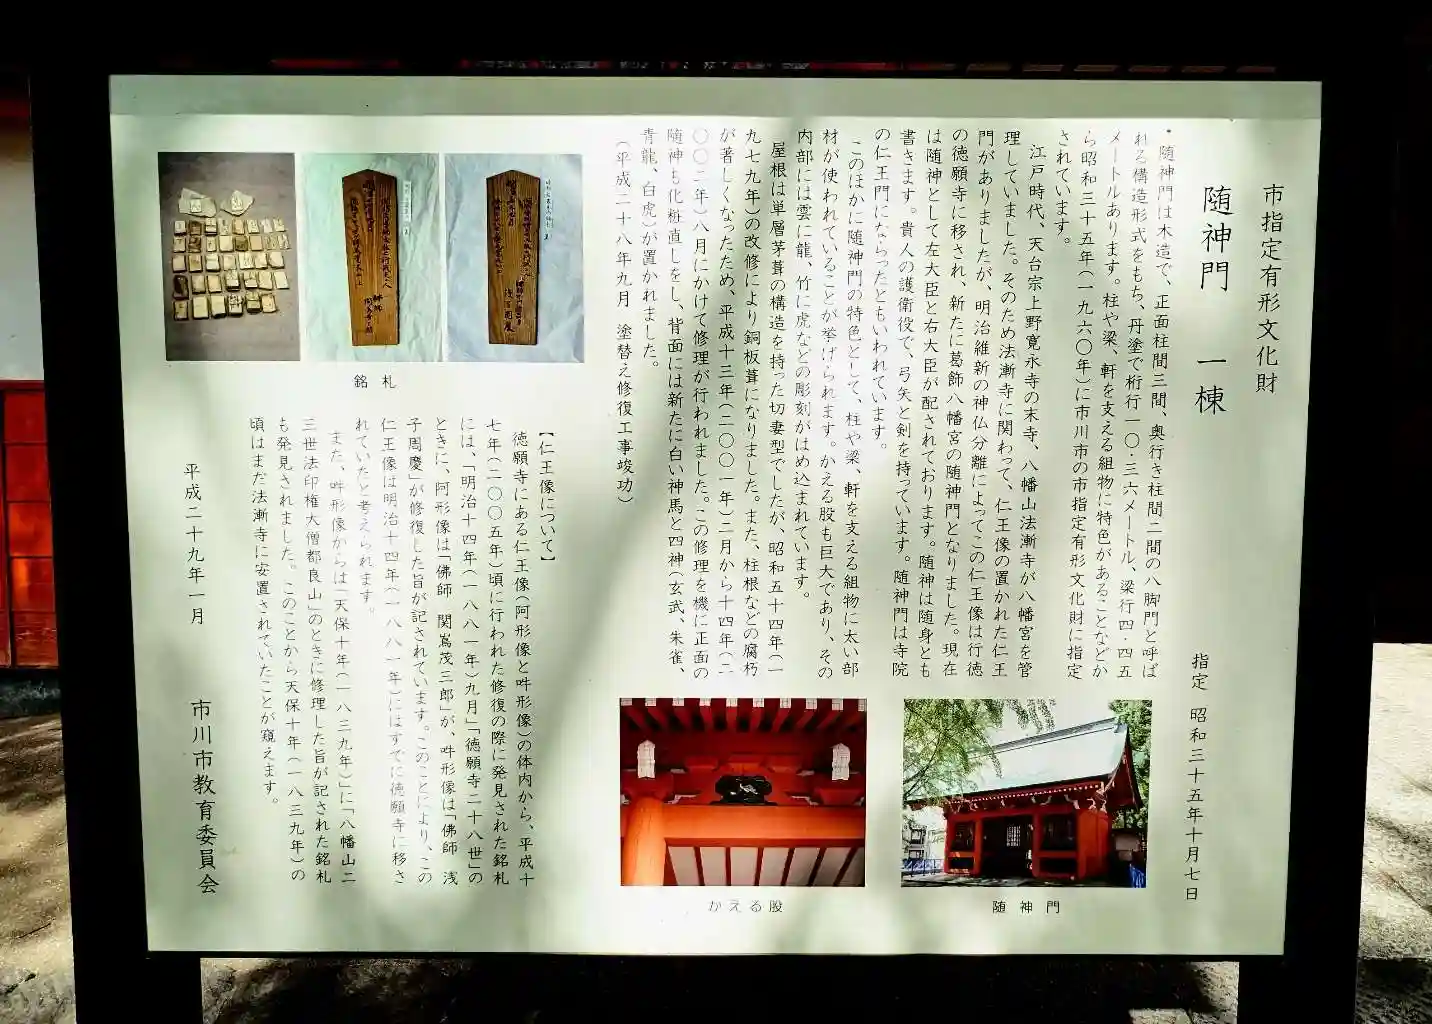 市指定有形文化財
随神門　一棟
指定　昭和三十五年十月七日
・随神門は木造で、正面柱間三間、奥行き柱間二間の八脚門と呼ば
れる構造形式をもち、丹塗で桁行一〇・三六メートル、梁行四・四五
メートルあります。柱や梁、軒を支える組物に特色があることなどか
ら昭和三十五年(一九六〇年)に市川市の市指定有形文化財に指定
されています。
江戸時代、天台宗上野寛永寺の末寺、八幡山法漸寺が八幡宮を管
理していました。そのため法漸寺に関わって、仁王像の置かれた仁王
門がありましたが、明治維新の神仏分離によってこの仁王像は行徳
の徳願寺に移され、新たに葛飾八幡宮の随神門となりました。現在
は随神として左大臣と右大臣が配されております。随神は随身とも
書きます。貴人の護衛役で、弓矢と剣を持っています。随神門は寺院
の仁王門にならったともいわれています。
このほかに随神門の特色として、柱や梁、軒を支える組物に太い部
材が使われていることが挙げられます。かえる股も巨大であり、その
内部には雲に龍、竹に虎などの彫刻がはめ込まれています。
屋根は単層茅葺の構造を持った切妻型でしたが、昭和五十四年(一
九七九年)の改修により銅板葺になりました。また、柱根などの腐朽
が著しくなったため、平成十三年(二〇〇一年)二月から十四年(二
〇〇二年)八月にかけて修理が行われました。この修理を機に正面の
随神も化粧直しをし、背面には新たに白い神馬と四神(玄武、朱雀、
青龍、白虎)が置かれました。
(平成二十八年九月　塗替え修復工事竣功)
随神門
かえる股
銘札
【仁王像について】
徳願寺にある仁王像(阿形像と吽形像)の体内から、平成十
七年(二〇〇五年)頃に行われた修復の際に発見された銘札
には、「明治十四年(一八八一年)九月」「徳願寺二十八世」の
ときに、阿形像は「佛師　関嶌茂三郎」が、吽形像は「佛師　浅
子周慶」が修復した旨が記されています。このことにより、この
仁王像は明治十四年(一八八一年)にはすでに徳願寺に移さ
れていたと考えられます。
また、吽形像からは「天保十年(一八三九年)」に「八幡山二
三世法印権大僧都良山」のときに修理した旨が記された銘札
も発見されました。このことから天保十年(一八三九年)の
頃はまだ法漸寺に安置されていたことが窺えます。
平成二十九年一月
市川市教育委員会